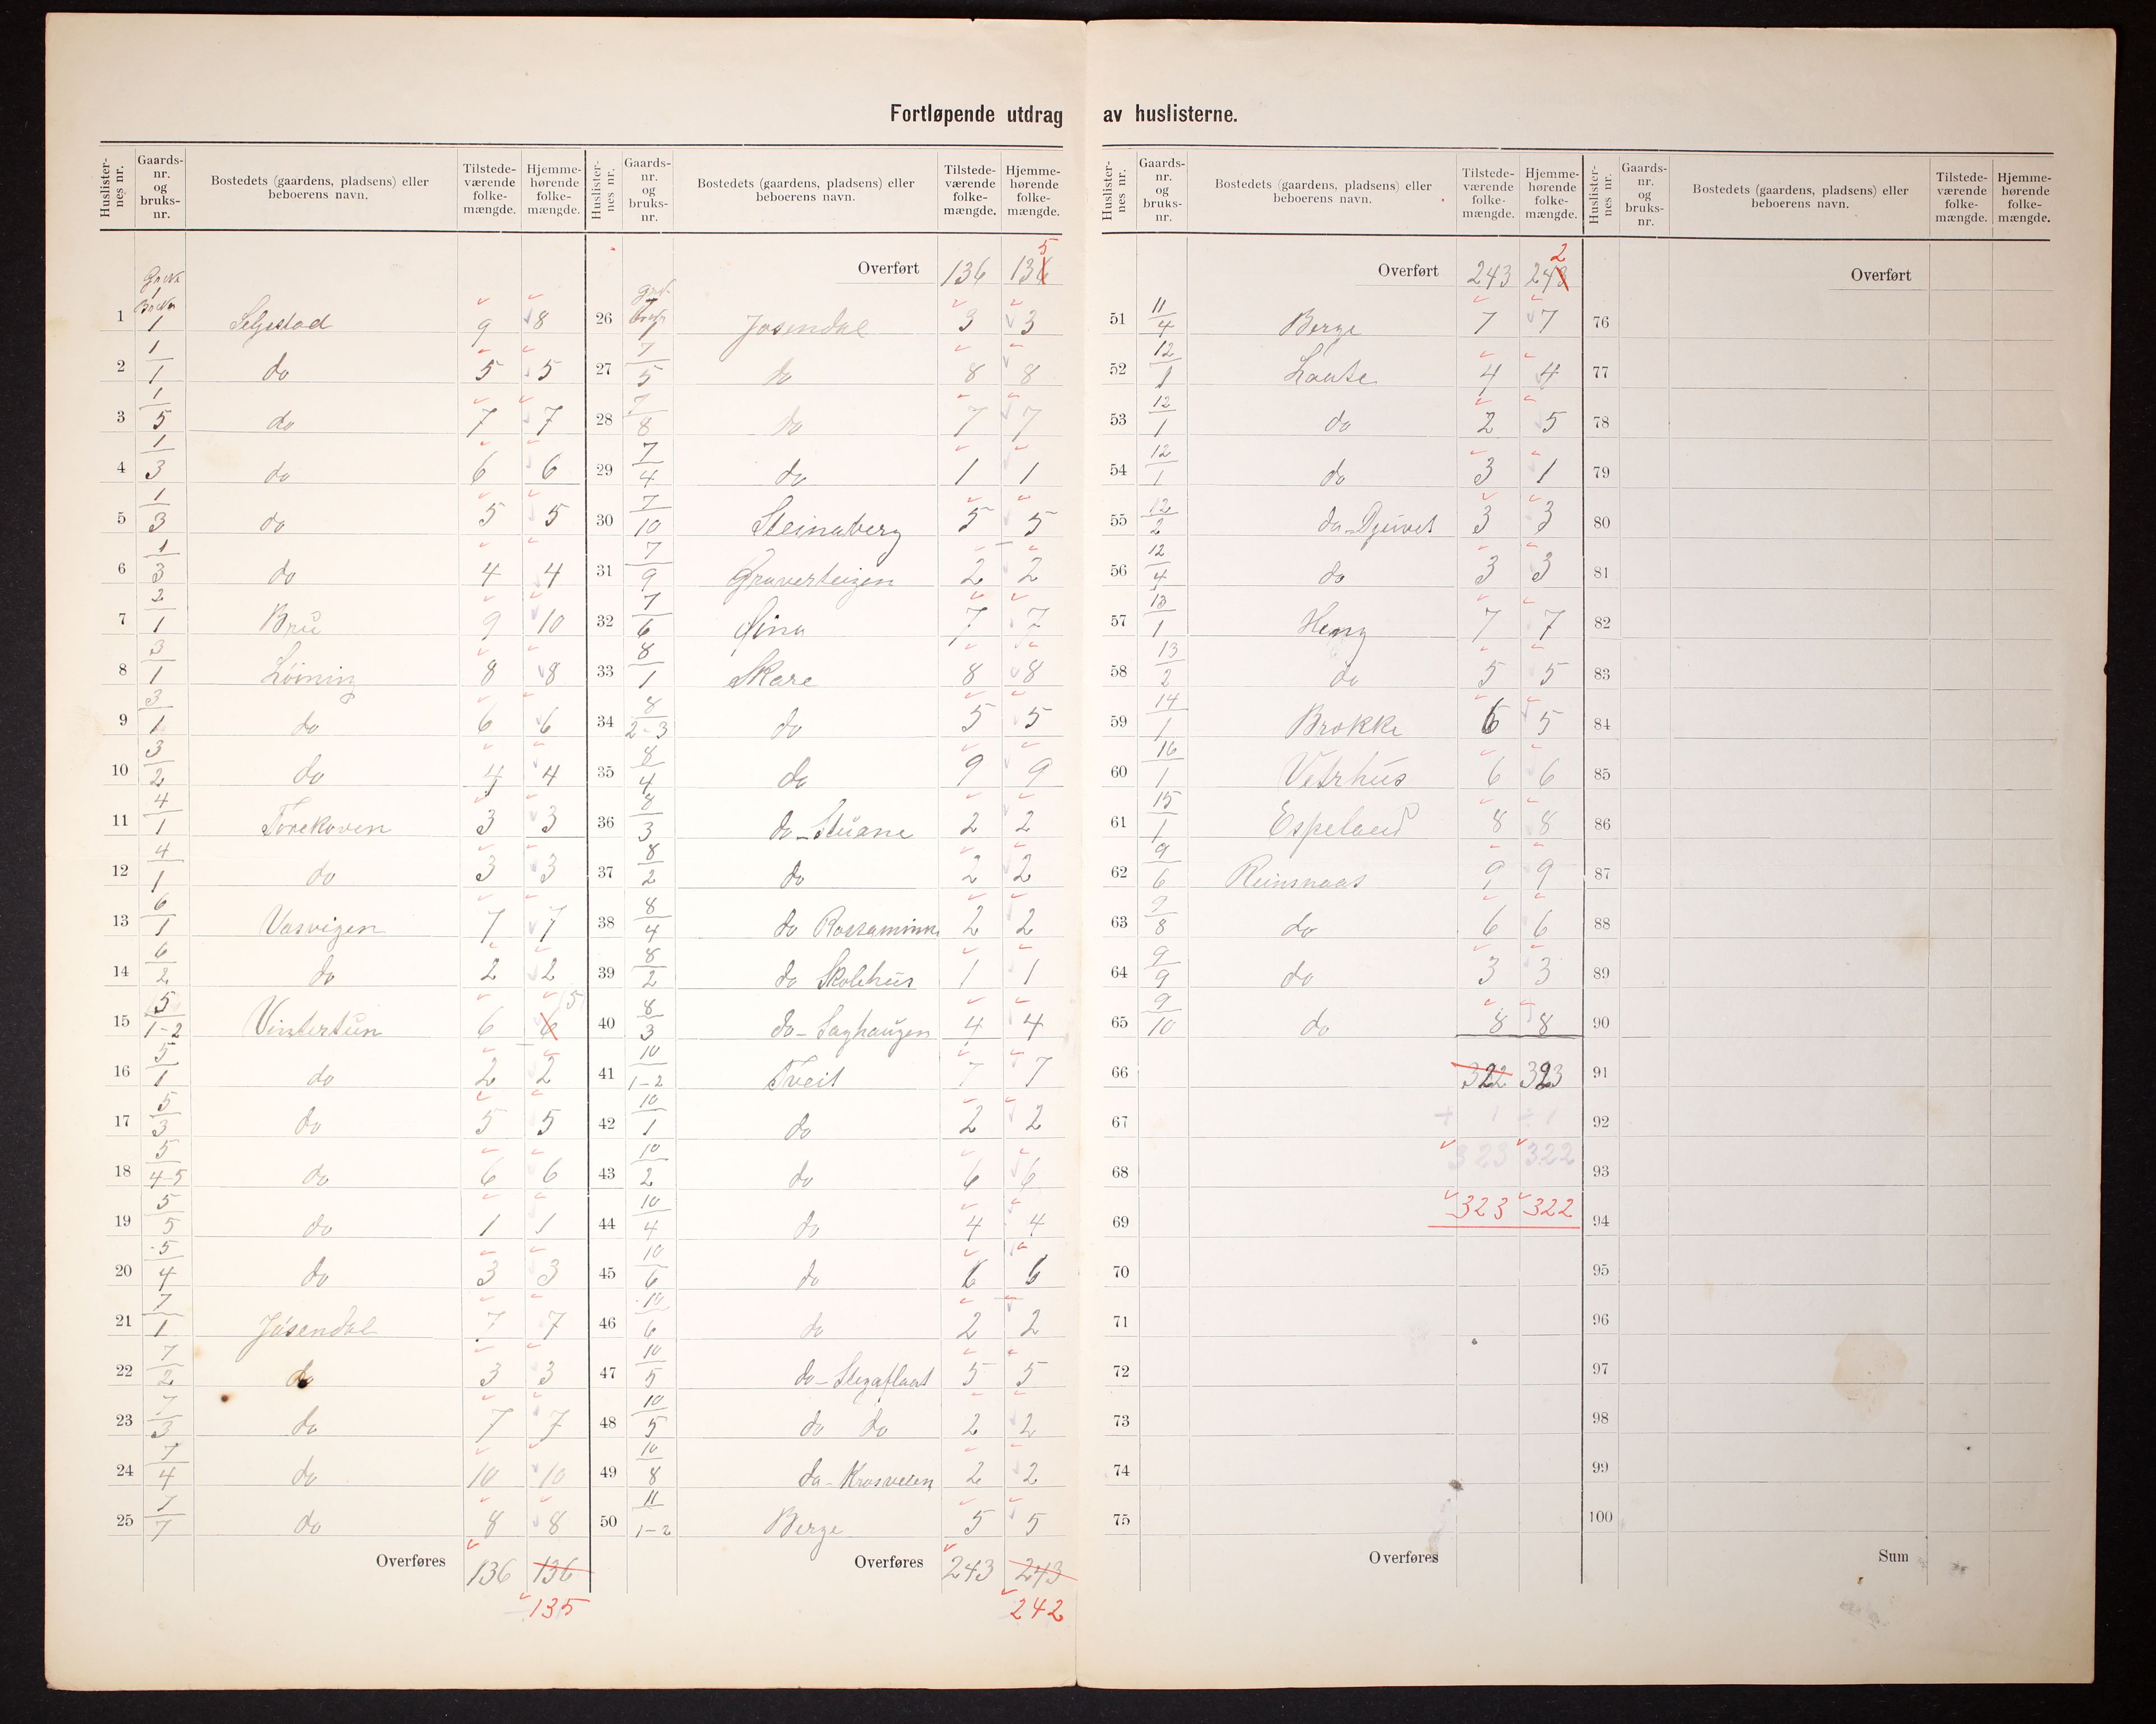 Fortløpende utdrag av huslisterne.
Huslister-nes nr. | Gaards-nr. og bruks-nr. | Bostedets (gaardens, pladsens) eller beboerens navn. | Tilstede-værende folke-mængde. | Hjemme-hørende folke-mængde.
1 | 1/1 | Seljestad | 9 | 8
2 | 1/1 | do | 5 | 5
3 | 1/5 | do | 7 | 7
4 | 1/3 | do | 6 | 6
5 | 1/3 | do | 5 | 5
6 | 1/3 | do | 4 | 4
7 | 2/1 | Brú | 9 | 10
8 | 3/1 | Løining | 8 | 8
9 | 3/1 | do | 6 | 6
10 | 3/2 | do | 4 | 4
11 | 4/1 | Torekoven | 3 | 3
12 | 4/1 | do | 3 | 3
13 | 6/1 | Vasvigen | 7 | 7
14 | 6/2 | do | 2 | 2
15 | 5/1-2 | Vintertún | 6 | 6 5
16 | 5/1 | do | 2 | 2
17 | 5/3 | do | 5 | 5
18 | 5/4-5 | do | 6 | 6
19 | 5/5 | do | 1 | 1
20 | 5/4 | do | 3 | 3
21 | 7/1 | Jøsendal | 7 | 7
22 | 7/2 | do | 3 | 3
23 | 7/3 | do | 7 | 7
24 | 7/4 | do | 10 | 10
25 | 7/7 | do | 8 | 8
Overføres 136 136
135
Huslister-nes nr. | Gaards-nr. og bruks-nr. | Bostedets (gaardens, pladsens) eller beboerens navn. | Tilstede-værende folke-mængde. | Hjemme-hørende folke-mængde.
Overført 136 136 5
26 | Jøsendal | 3 | 3
27 | 7/5 | do | 8 | 8
28 | 7/8 | do | 7 | 7
29 | 7/4 | do | 1 | 1
30 | 7/10 | Steinaberg | 5 | 5
31 | 7/9 | Graverteigen | 2 | 2
32 | 7/6 | 7 | 7
33 | 8/1 | Skare | 8 | 8
34 | 8/2-3 | do | 5 | 5
35 | 8/4 | do | 9 | 9
36 | 8/3 | do - Stúane | 2 | 2
37 | 8/2 | do | 2 | 2
38 | 8/4 | do | 2 | 2
39 | 8/2 | do Skolehús | 1 | 1
40 | 8/3 | do - Saghaúgen | 4 | 4
41 | 10/1-2 | Tveit | 7 | 7
42 | 10/1 | do | 2 | 2
43 | 10/2 | do | 6 | 6
44 | 10/4 | do | 4 | 4
45 | 10/6 | do | 6 | 6
46 | 10/6 | do | 2 | 2
47 | 10/5 | do - | 5 | 5
48 | 10/5 | do do | 2 | 2
49 | 10/8 | do - | 2 | 2
50 | 11/1-2 | Berge | 5 | 5
Overføres 243 243
242
Huslister-nes nr. | Gaards-nr. og bruks-nr. | Bostedets (gaardens, pladsens) eller beboerens navn. | Tilstede-værende folke-mængde. | Hjemme-hørende folke-mængde.
Overført 243 243 2
51 | 11/4 | Berge | 7 | 7
52 | 12/1 | Løate | 4 | 4
53 | 12/1 | do | 2 | 5
54 | 12/1 | do | 3 | 1
55 | 12/2 | do - Djúvet | 3 | 3
56 | 12/4 | do | 3 | 3
57 | 13/1 | 7 | 7
58 | 13/2 | do | 5 | 5
59 | 14/1 | Brokke | 6 | 5
60 | 16/1 | Vetrhús | 6 | 6
61 | 15/1 | Espeland | 8 | 8
62 | 9/6 | Reinsnaas | 9 | 9
63 | 9/8 | do | 6 | 6
64 | 9/9 | do | 3 | 3
65 | 9/10 | do | 8 | 8
66 322 323
67 + 1 ÷ 1
68 323 322
69 323 322
70
71
72
73
74
75
Overføres
Huslister-nes nr. | Gaards-nr. og bruks-nr. | Bostedets (gaardens, pladsens) eller beboerens navn. | Tilstede-værende folke-mængde. | Hjemme-hørende folke-mængde.
Overført
76
77
78
79
80
81
82
83
84
85
86
87
88
89
90
91
92
93
94
95
96
97
98
99
100
Sum